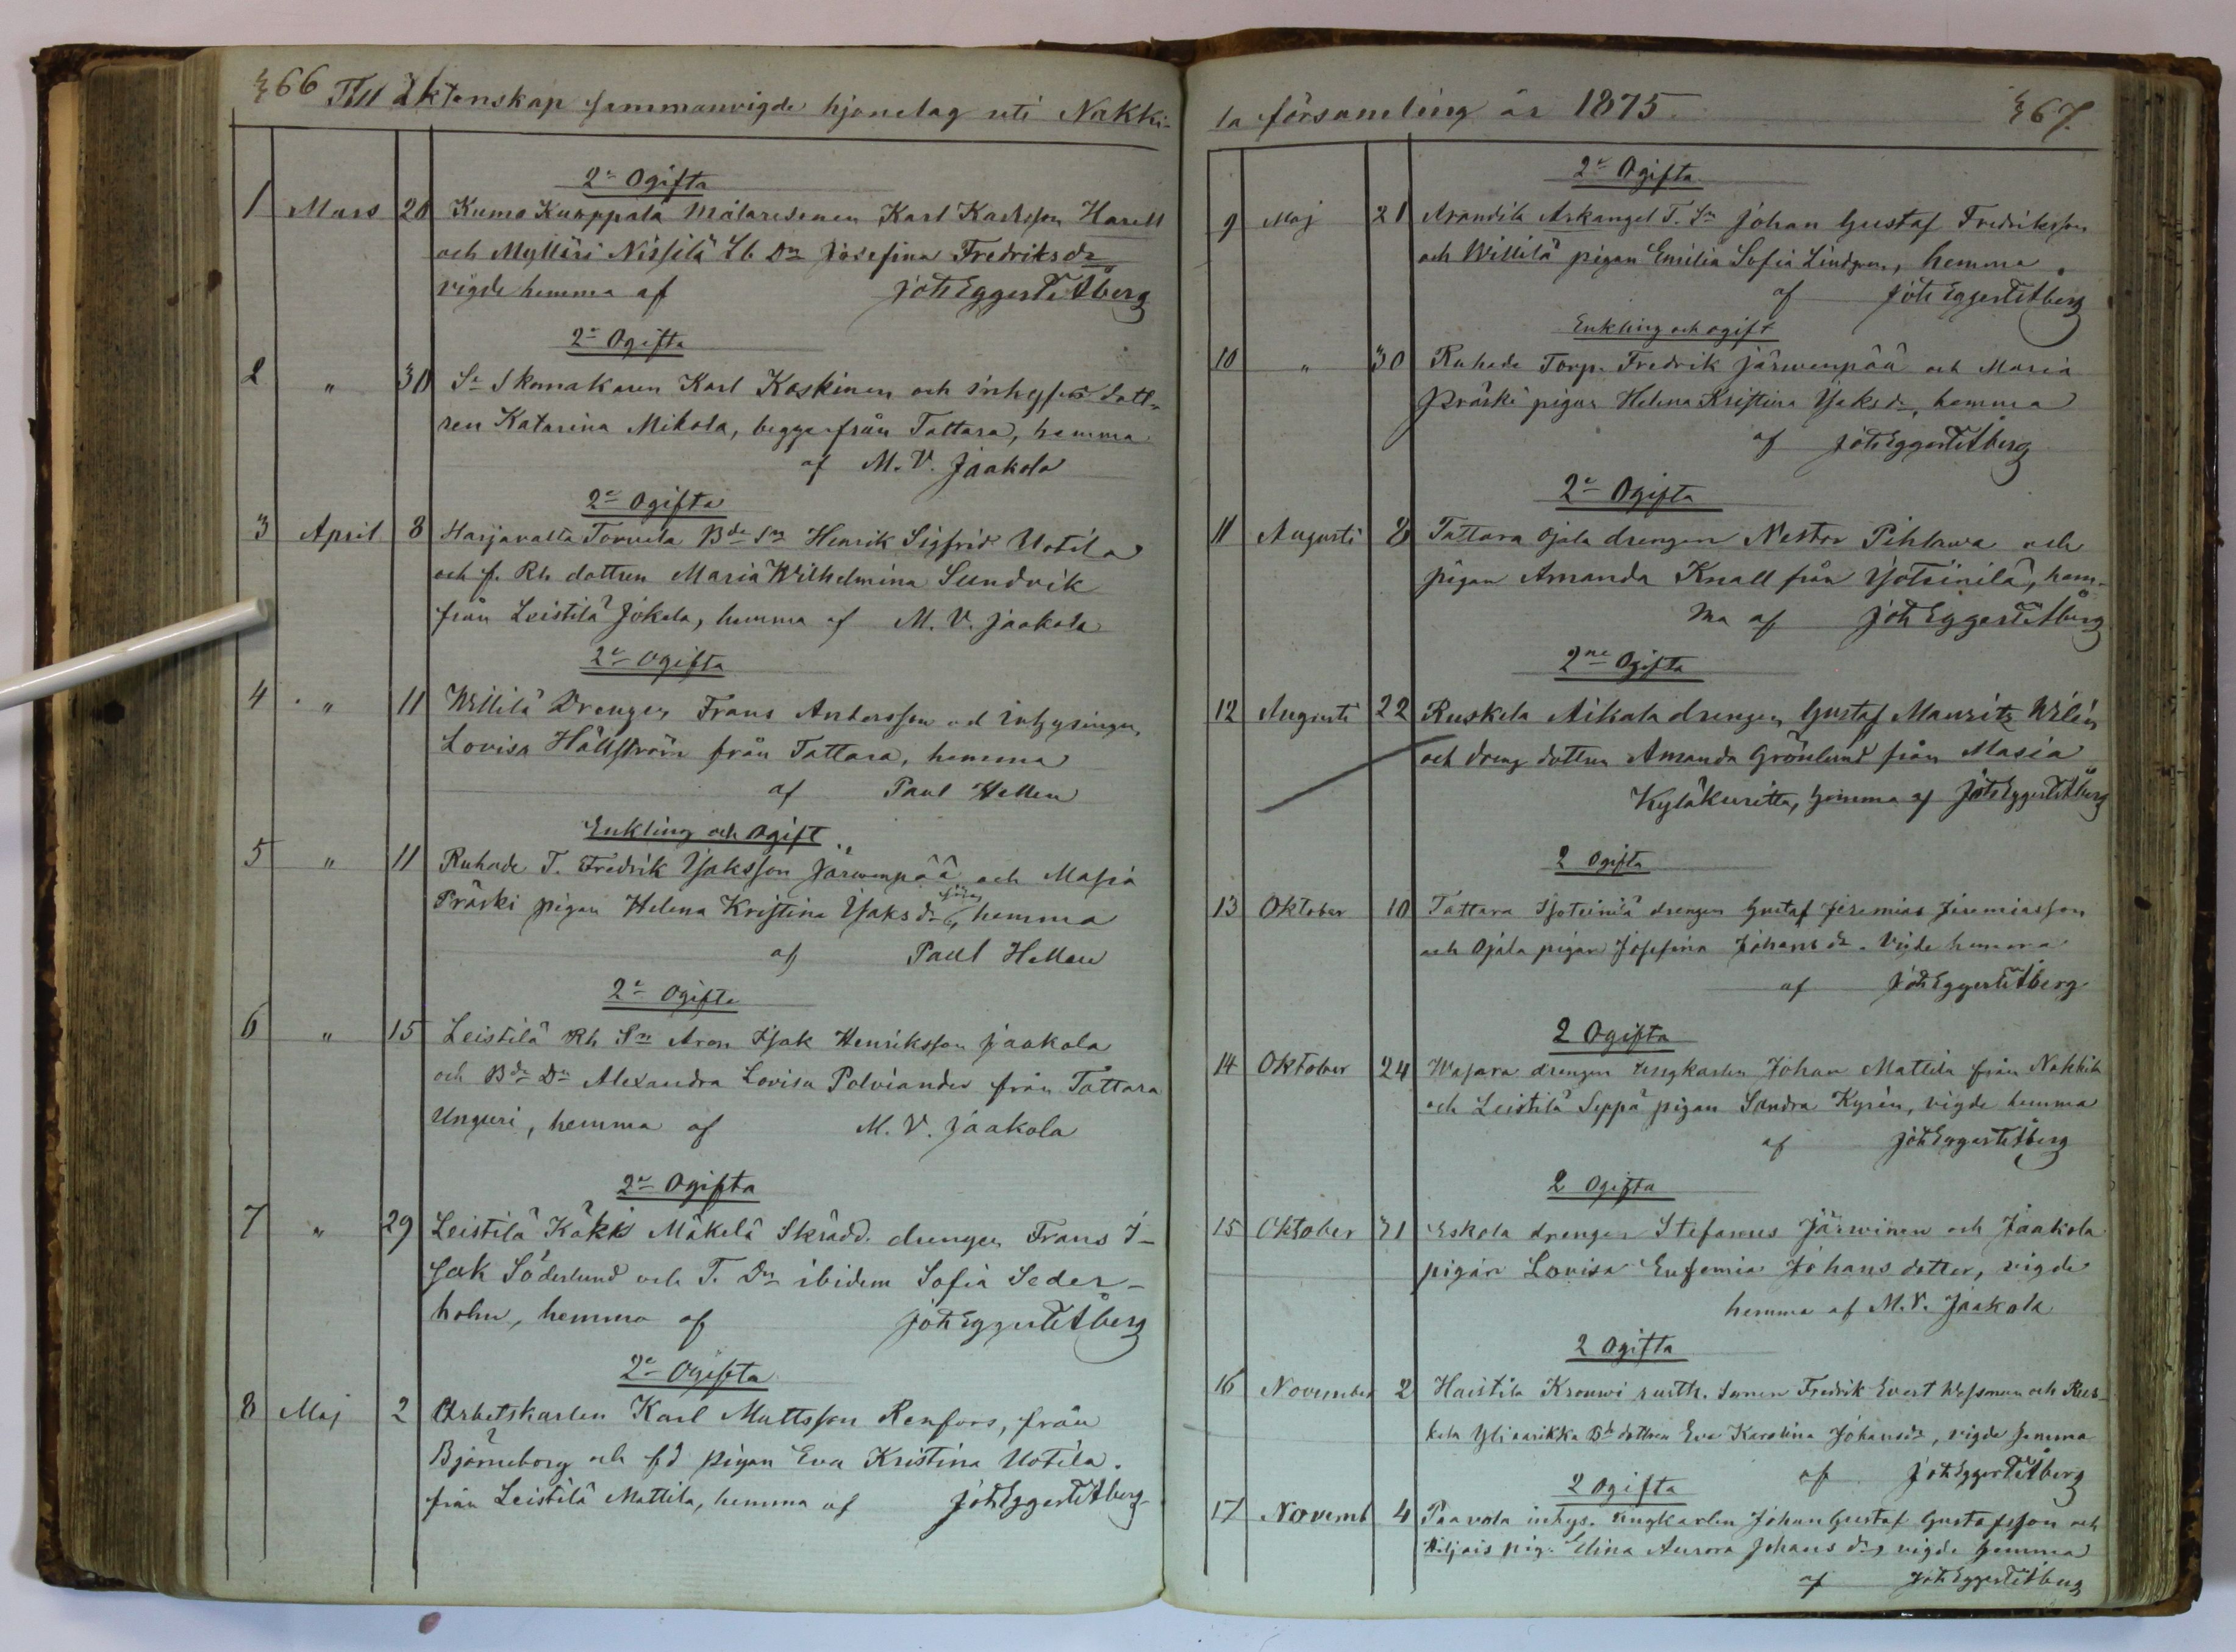 66 Till äktenskap sammanvigde hjonelag uti Nakki-
2ne Ogifta
1 Mars 20 Kumo Kuoppala Målaresonen Karl Karlsson Harell
och Mylläri Nissilä Dn Josefina Fredriksdr
vigde hemma af Joh Eggert Åberg
2ne Ogifta
2 " 30 Sn Skomakaren Karl Koskinen och inhyses dott-
ren Katarina Mikola, begge från Tattara, hemma
af M. V. Jaakola
2ne Ogifta
3 April 8 Harjavalta Torvela Bde Sn Henrik Sigfrid Uotila
och f. Rh dottren Maria Wilhelmina Sundvik
från Leistilä Jokela, hemma af M. V. Jaakola
2ne Ogifta
4 " 11 Willilä Drengen Frans Andersson och Inhysingen
Lovisa Hällström från Tattara, hemma
af Paul Hellen
Enkling och Ogift
5 " 11 Ruhade T. Fredrik Isaksson Järwenpää och Masia
Präski pigan Helena Kristina Isaksdr, hemma
af Paul Hellen
2ne Ogifta
6 " 15 Leistilä Rh Sn Aron Isak Henriksson Jaakola
och Bde Dn Alexandra Lovisa Polviander från Tattara
Unguri, hemma af M. V. Jaakola
2ne Ogifta
7 " 29 Leistilä Käkki Mäkelä Skrädd. drengen Frans I-
sak Söderlund och T. Dn ibidem Sofia Seder-
holm, hemma af Joh Eggert Åberg
2ne Ogifta
8 Maj 2 Arbetskarlen Karl Mattsson Renfors, från
Björneborg och fd pigan Eva Kristina Uotila.
från Leistilä Mattila, hemma af Joh Eggert Åberg
la församling år 1875. 67.
2ne Ogifta
9 Maj 21 Arandila Arkangel T. Sn Johan Gustaf Fredriksson
och Willilä pigan Emilia Sofia Lindgren, hemma
af Joh Eggert Åberg
Enkling och ogift
10 " 30 Ruhade Torp. Fredrik Järwenpää och Masia
Präski pigan Helena Kristina Isaksdr, hemma
af Joh Eggert Åberg
2ne Ogifta
11 Augusti 8 Tattara Ojala drengen Nestor Pihlawa och
pigan Amanda Knall från Isotsinilä, hem-
ma af Joh Eggert Åberg
2ne Ogifta
12 Augusti 22 Ruskela Aikala drengen Gustaf Mauritz Wilén
och dreng dottren Amanda Grönlund från Masia
Kyläkuritta, hemma af Joh Eggert Åberg
2 Ogifta
13 Oktober 10 Tattara Isotsinilä drengen Gustaf Jeremias Jeremiasson
och Ojala pigan Josefina Johansdr. Vigde hemma
af Joh Eggert Åberg
2 Ogifta
14 Oktober 24 Wasara drengen ungkarlen Johan Mattila från Nakkila
och Leistilä Seppä pigan Sandra Kyrén, vigde hemma
af Joh Eggert Åberg
2 Ogifta
15 Oktober 31 Eskola drengen Stefanus Järwinen och Jaakola
pigan Lovisa Eufemia Johans dotter, vigde
hemma af M. V. Jaakola
2 Ogifta
16 November 2 Haistila Krouwi rusth. sonen Fredrik Evert Wessman och Rus-
kela Yliaarikka Bde dottren Eva Karolina Johansdr, vigde hemma
af Joh Eggert Åberg
2 Ogifta
17 Novemb 4 Paavola inhys. ungkarlen Johan Gustaf Gustafsson och
pig. Elina Aurora Johansdr, vigde hemma
af Joh Eggert Åberg